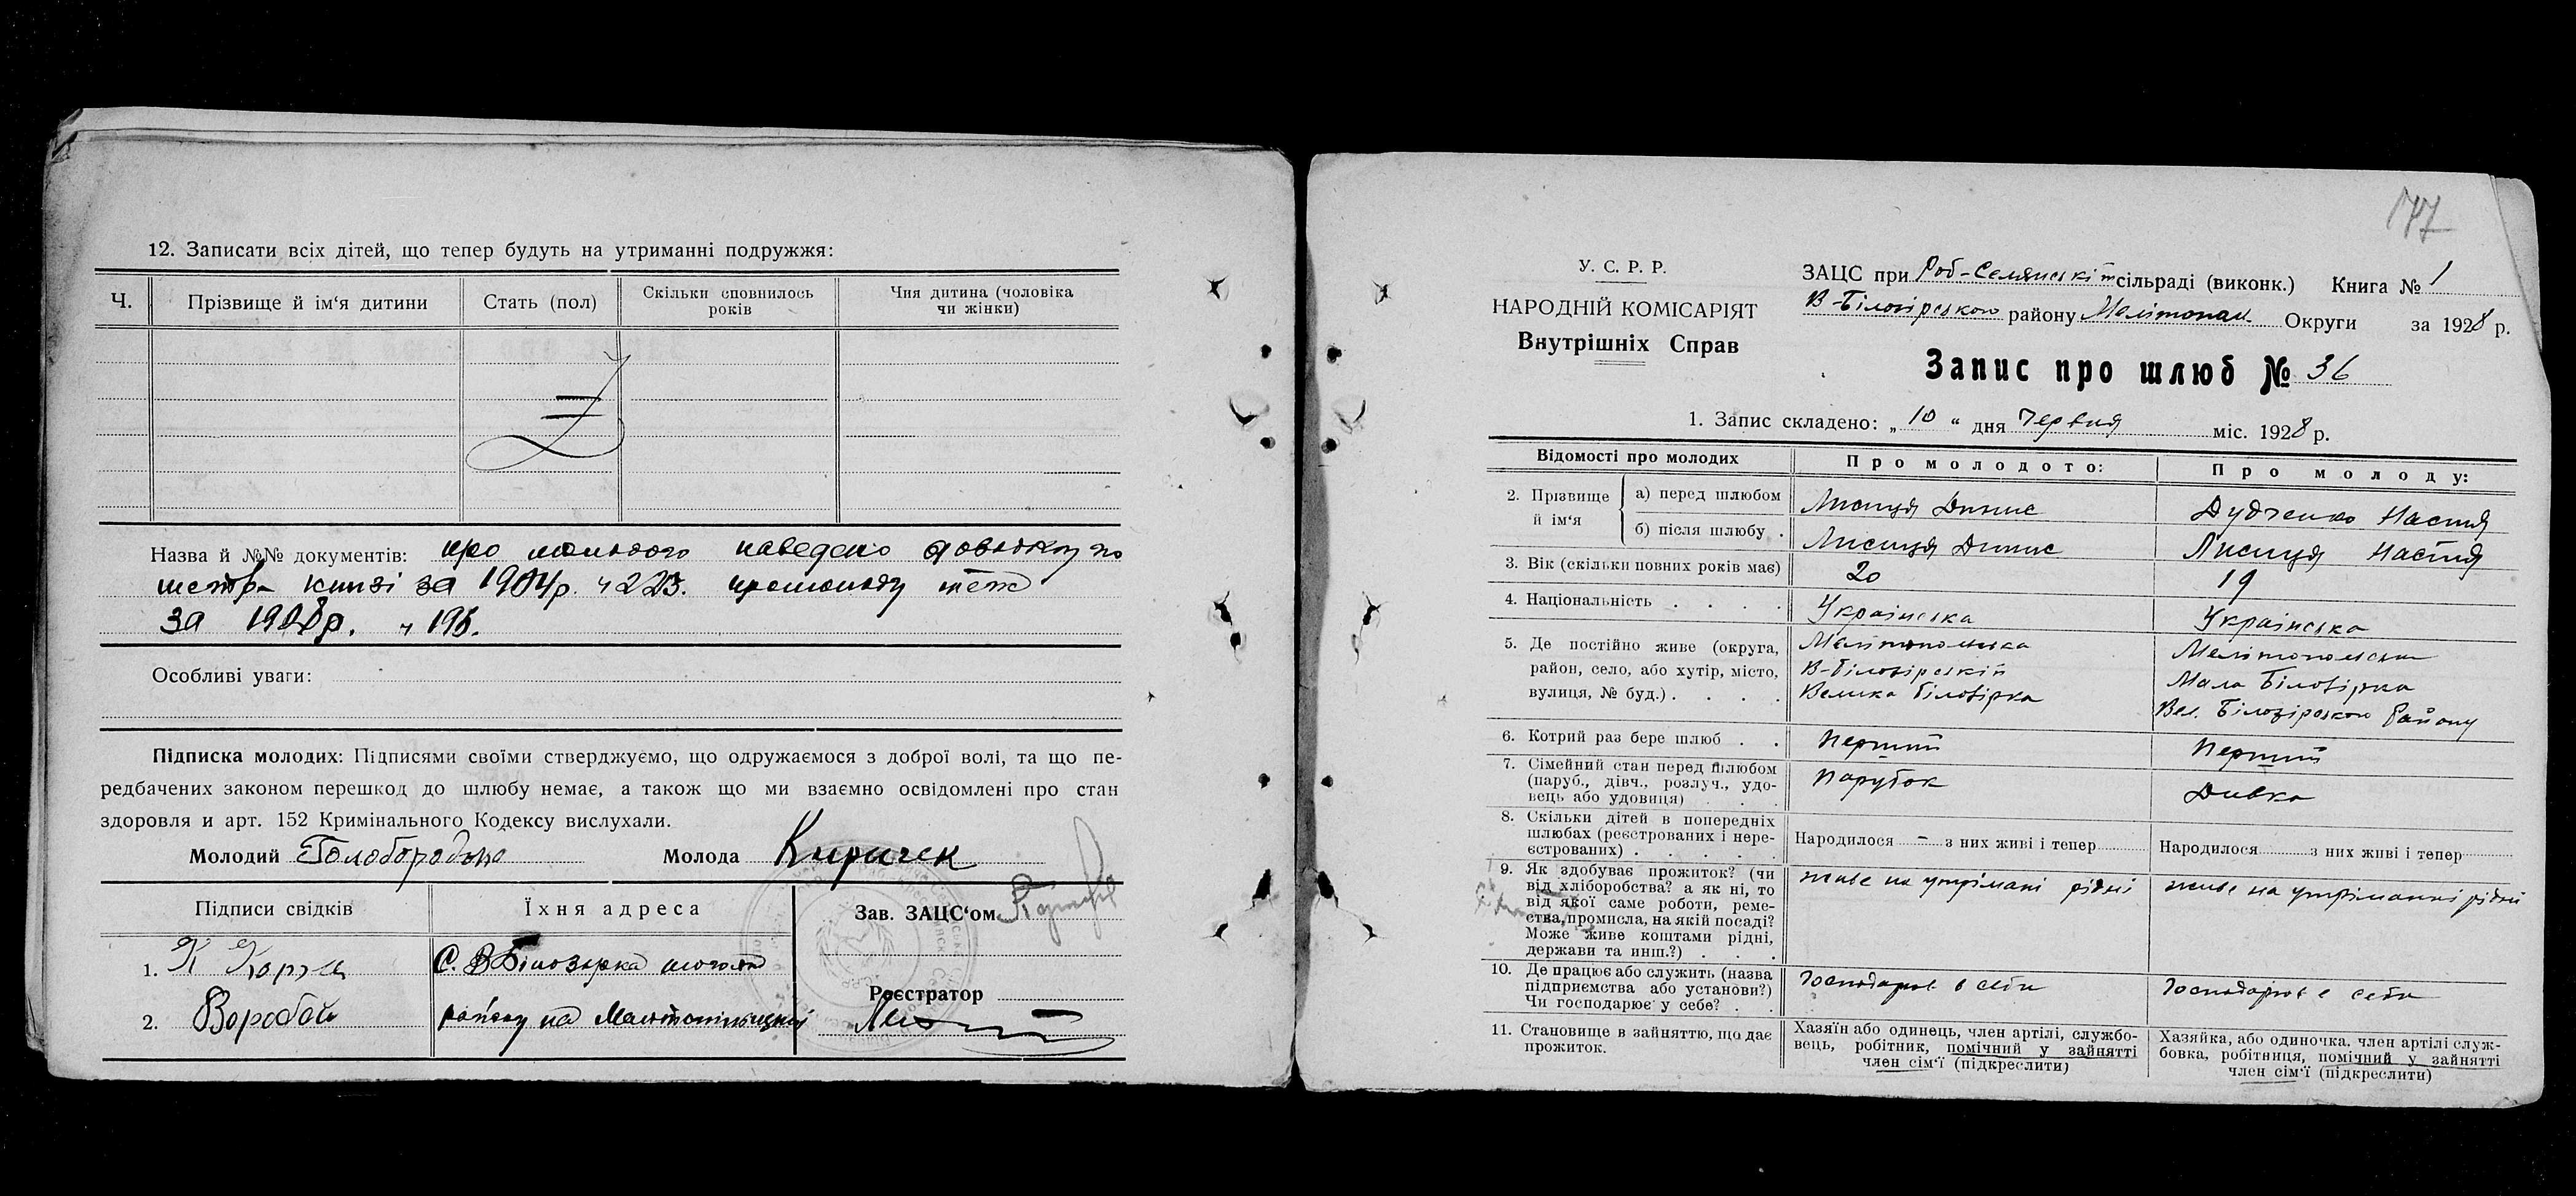 12. Записати всіх дітей, що тепер будуть на утриманні подружжя:
Ч.
Прізвище й ім'я дитини
Стать (пол)
Скільки сповнилось
років
Чия дитина (чоловіка
чи жінки)
Z
Назва й №№ документів: про молодого наведено довідку по
метр. книзі за 1904р. ч 223. про молоду теж
за 1908р. ч 195.
Особливі уваги:
Підписка молодих: Підписями своїми стверджуємо, що одружаємося з доброї волі, та що пе-
редбачених законом перешкод до шлюбу немає, а також що ми взаємно освідомлені про стан
здоровля и арт. 152 Кримінального Кодексу вислухали.
Молодий Голобородько Молода Киричек
Підписи свідків
Їхня адреса
Зав. ЗАЦС'ом
1. К Корж
С. В Білозірка
Реєстратор
2. Воробай
району на
77
У. С. Р. Р.
НАРОДНІЙ КОМІСАРІЯТ
Внутрішніх Справ
ЗАЦС при сільраді (виконк.) Книга № 1
В-Білозірського району Мелітопал. Округи за 1928 р.
Запис про шлюб № 36
1. Запис складено: „ 10 “ дня Червня міс. 1928 р.
Відомості про молодих
Про молодого:
Про молоду:
2. Прізвище й ім'я
а) перед шлюбом
Лисиця Динис
Дудченко Настя
б) після шлюбу .
Лисиця Динис
Лисиця Настя
3. Вік (скільки повних років має)
20
19
4. Національність . . . .
Українська
Українська
5. Де постійно живе (округа,
район, село, або хутір, місто,
вулиця, № буд.) . . . .
Мелітопольська
В-Білозірскій
Велика Білозірка
Мелітопольська
Мала Білозірка
Вел. Білозірского Району
6. Котрий раз бере шлюб . .
Перший
Перший
7. Сімейний стан перед шлюбом
(паруб., дівч., розлуч., удо-
вець або удовиця) . . .
Парубок
Дивка
8. Скільки дітей в попередніх
шлюбах (реєстрованих і нере-
єстрованих) . . . . .
Народилося – з них живі і тепер
Народилося з них живі і тепер
9. Як здобуває прожиток? (чи
від хліборобства? а як ні, то
від якої саме роботи, реме-
ства, промисла, на якій посаді?
Може живе коштами рідні,
держави та инш.?) . . .
живе на утрімані рідні
живе на утріманні рідні
10. Де працює або служить (назва
підприємства або установи?)
Чи господарює у себе? . .
Господарює в себи
Господарює в себи
11. Становище в зайняттю, що дає
прожиток.
Хазяїн або одинець, член артілі, службо-
вець, робітник, помічний у зайнятті
член сім'ї (підкреслити)
Хазяйка, або одиночка, член артілі служ-
бовка, робітниця, помічний у зайнятті
член сім'ї (підкреслити)